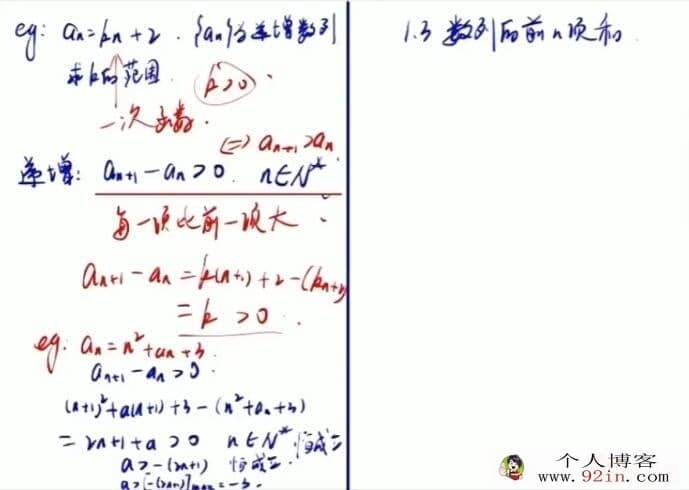 eg: aₙ=kn+2. {aₙ}为递增数列
求k的范围. k>0.
一次函数.
⇔ aₙ₊₁>aₙ.
递增: aₙ₊₁-aₙ>0. n∈N*
每一项比前一项大.
aₙ₊₁-aₙ=k(n+1)+2-(kn+2)
=k>0.
eg: aₙ=n²+an+3.
aₙ₊₁-aₙ>0.
(n+1)²+a(n+1)+3-(n²+an+3)
=2n+1+a>0 n∈N* 恒成立
a>-(2n+1) 恒成立.
a>[-(2n+1)]max=-3.
1.3 数列的前n项和.
个人博客
www.92in.com